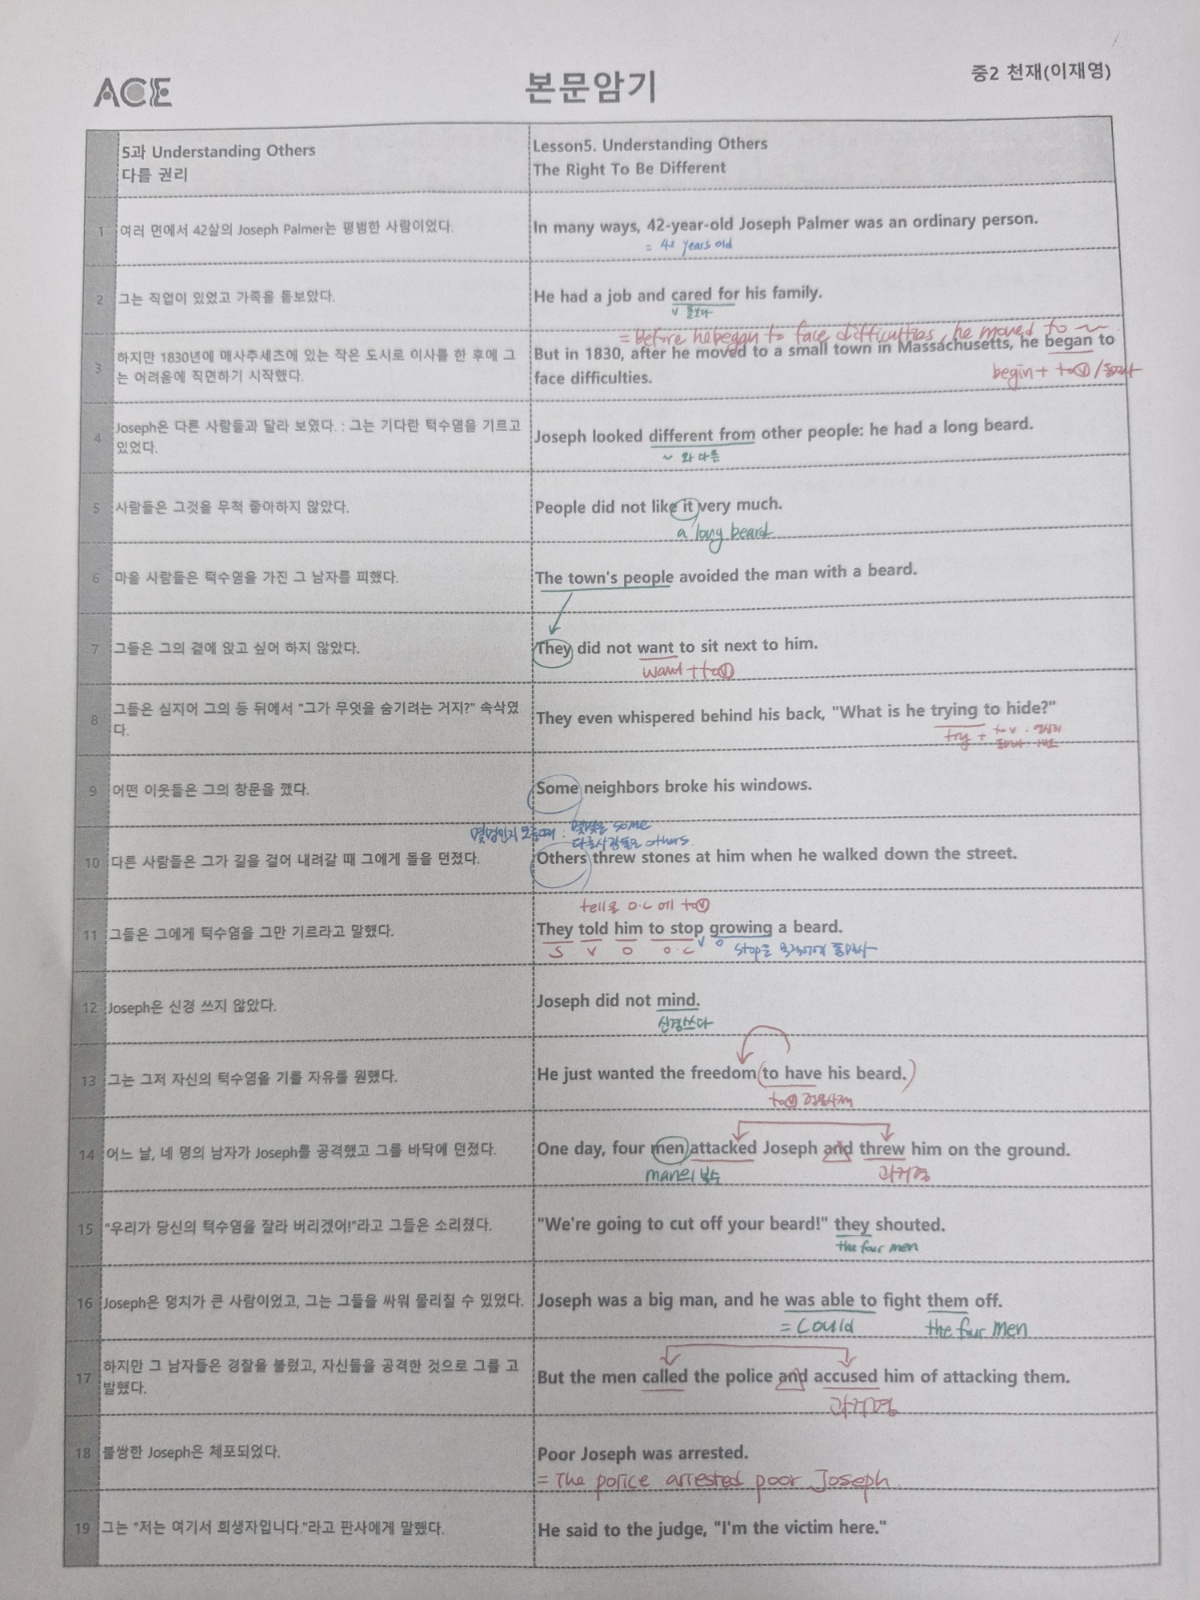 ACE
본문암기
중2 천재(이재영)
5과 Understanding Others
다를 권리
Lesson5. Understanding Others
The Right To Be Different
1 여러 면에서 42살의 Joseph Palmer는 평범한 사람이었다.
In many ways, 42-year-old Joseph Palmer was an ordinary person.
= 42 years old
2 그는 직업이 있었고 가족을 돌보았다.
He had a job and cared for his family.
v 돌보다
= Before he began to face difficulties, he moved to ~
3 하지만 1830년에 매사추세츠에 있는 작은 도시로 이사를 한 후에 그
는 어려움에 직면하기 시작했다.
But in 1830, after he moved to a small town in Massachusetts, he began to
face difficulties.
begin + to ⓥ / 동명사
4 Joseph은 다른 사람들과 달라 보였다. : 그는 기다란 턱수염을 기르고
있었다.
Joseph looked different from other people: he had a long beard.
~ 와 다른
5 사람들은 그것을 무척 좋아하지 않았다.
People did not like it very much.
a long beard
6 마을 사람들은 턱수염을 가진 그 남자를 피했다.
The town's people avoided the man with a beard.
7 그들은 그의 곁에 앉고 싶어 하지 않았다.
They did not want to sit next to him.
want + to ⓥ
8 그들은 심지어 그의 등 뒤에서 "그가 무엇을 숨기려는 거지?" 속삭였
다.
They even whispered behind his back, "What is he trying to hide?"
try + to v
9 어떤 이웃들은 그의 창문을 깼다.
Some neighbors broke his windows.
몇명인지 모를때 : 몇몇은 some
다른사람들은 others.
10 다른 사람들은 그가 길을 걸어 내려갈 때 그에게 돌을 던졌다.
Others threw stones at him when he walked down the street.
tell은 O.C 에 to ⓥ
11 그들은 그에게 턱수염을 그만 기르라고 말했다.
They told him to stop growing a beard.
S V O O.C V O stop은 목적어에 동명사
12 Joseph은 신경 쓰지 않았다.
Joseph did not mind.
신경쓰다
13 그는 그저 자신의 턱수염을 기를 자유를 원했다.
He just wanted the freedom (to have his beard.)
to ⓥ 형용사적
14 어느 날, 네 명의 남자가 Joseph를 공격했고 그를 바닥에 던졌다.
One day, four men attacked Joseph and threw him on the ground.
man의 복수 과거형
15 "우리가 당신의 턱수염을 잘라 버리겠어!"라고 그들은 소리쳤다.
"We're going to cut off your beard!" they shouted.
the four men
16 Joseph은 덩치가 큰 사람이었고, 그는 그들을 싸워 물리칠 수 있었다.
Joseph was a big man, and he was able to fight them off.
= could the fur men
17 하지만 그 남자들은 경찰을 불렀고, 자신들을 공격한 것으로 그를 고
발했다.
But the men called the police and accused him of attacking them.
과거형
18 불쌍한 Joseph은 체포되었다.
Poor Joseph was arrested.
= The police arrested poor Joseph.
19 그는 "저는 여기서 희생자입니다."라고 판사에게 말했다.
He said to the judge, "I'm the victim here."